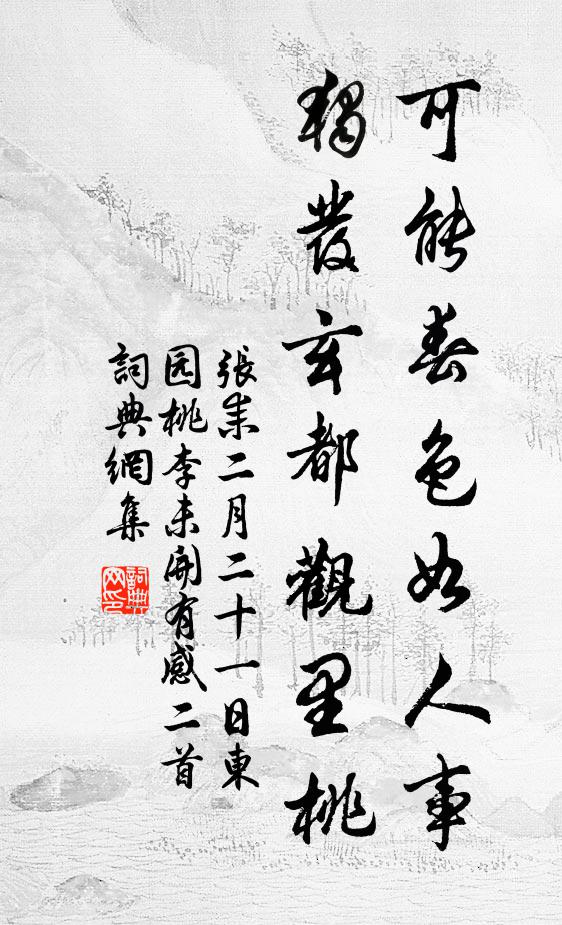 可能春色如人事
獨發玄都觀里桃
張耒二月二十一日東
园桃李未開有感二首
詞典網集
詞典網印